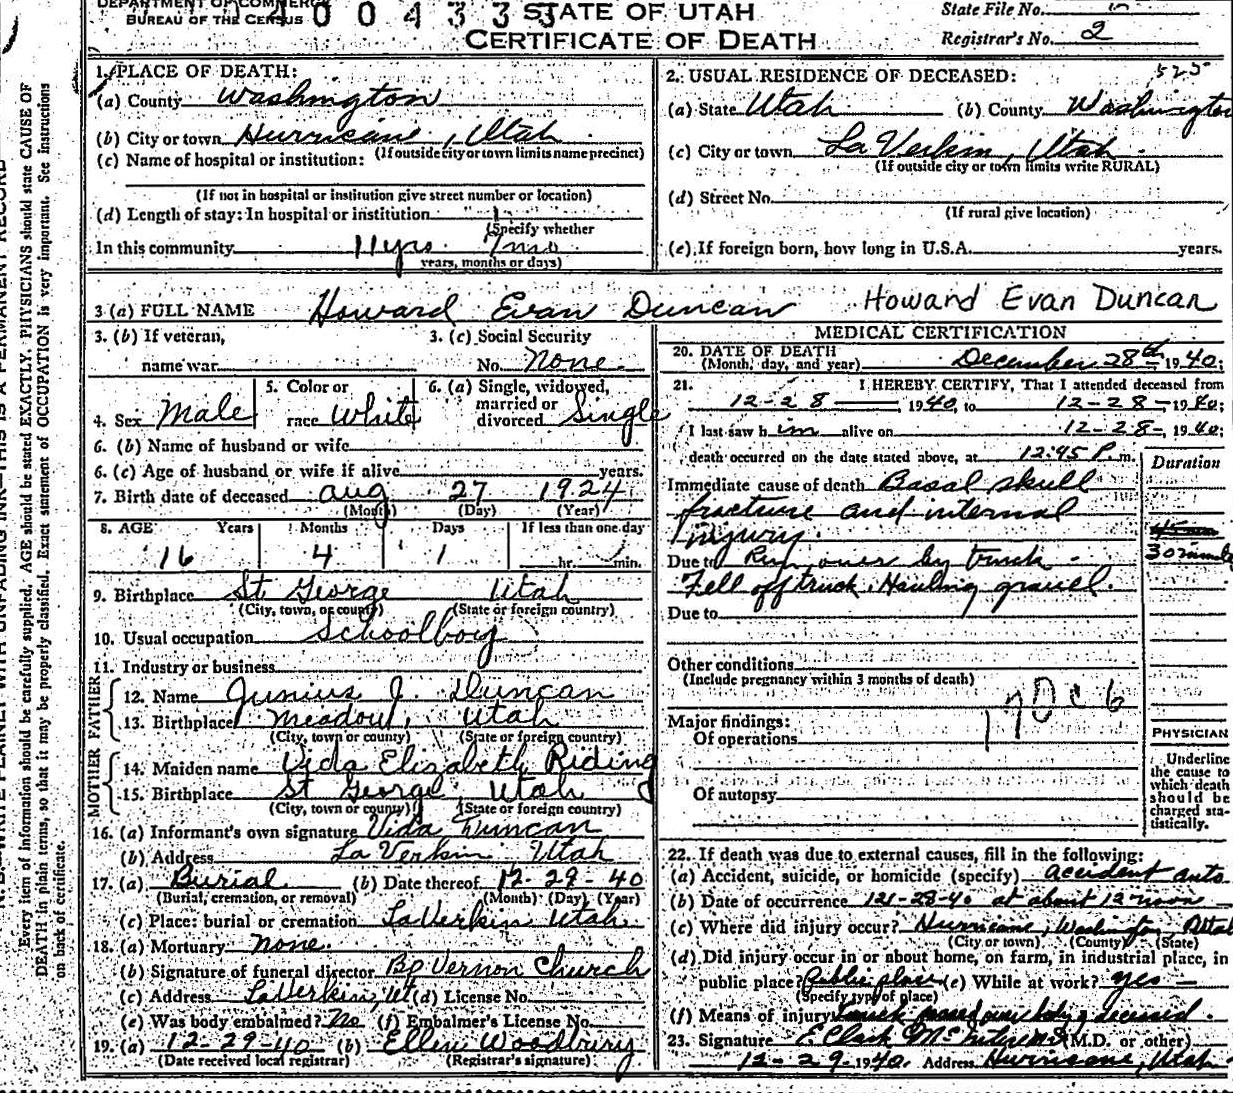 DEPARTMENT OF COMMERCE
BUREAU OF THE CENSUS
4 0 0 4 3 3 3
STATE OF UTAH
CERTIFICATE OF DEATH
State File No.
Registrar's No. 2
N. B.—WRITE PLAINLY WITH UNFADING INK—THIS IS A PERMANENT RECORD
Every item of information should be carefully supplied. AGE should be stated EXACTLY. PHYSICIANS should state CAUSE OF
DEATH in plain terms, so that it may be properly classified. Exact statement of OCCUPATION is very important. See Instructions
on back of certificate.
1. PLACE OF DEATH:
(a) County Washington
(b) City or town Hurricane, Utah
(If outside city or town limits name precinct)
(c) Name of hospital or institution:
(If not in hospital or institution give street number or location)
(d) Length of stay: In hospital or institution
(Specify whether
In this community 11 yrs. 7 mo
years, months or days)
2. USUAL RESIDENCE OF DECEASED: 525
(a) State Utah (b) County Washington
(c) City or town La Verkin, Utah
(If outside city or town limits write RURAL)
(d) Street No.
(If rural give location)
(e) If foreign born, how long in U.S.A. years.
3 (a) FULL NAME Howard Evan Duncan Howard Evan Duncan
3. (b) If veteran,
name war
3. (c) Social Security
No. none.
4. Sex Male
5. Color or
race White
6. (a) Single, widowed,
married or
divorced Single
6. (b) Name of husband or wife
6. (c) Age of husband or wife if alive years.
7. Birth date of deceased Aug 27 1924
(Month) (Day) (Year)
8. AGE Years Months Days If less than one day
16 4 1 hr. min.
9. Birthplace St. George Utah
(City, town, or county) (State or foreign country)
10. Usual occupation Schoolboy
11. Industry or business
FATHER
12. Name Junius J. Duncan
13. Birthplace Meadow, Utah
(City, town or county) (State or foreign country)
MOTHER
14. Maiden name Vida Elizabeth Riding
15. Birthplace St George Utah
(City, town or county) (State or foreign country)
16. (a) Informant's own signature Vida Duncan
(b) Address La Verkin, Utah
17. (a) Burial (b) Date thereof 12-29-40
(Burial, cremation, or removal) (Month) (Day) (Year)
(c) Place: burial or cremation LaVerkin Utah
18. (a) Mortuary none.
(b) Signature of funeral director Bp Vernon Church
(c) Address LaVerkin, Ut (d) License No.
(e) Was body embalmed? No (f) Embalmer's License No.
19. (a) 12-29-40 (b) Ellen Woodbury
(Date received local registrar) (Registrar's signature)
MEDICAL CERTIFICATION
20. DATE OF DEATH
(Month, day, and year) December 28th 1940;
21. I HEREBY CERTIFY, That I attended deceased from
12-28 1940, to 12-28-1940;
I last saw him alive on 12-28-, 1940;
death occurred on the date stated above, at 12:45 P. m.
Duration
Immediate cause of death Basal skull
fracture and internal
injury.
30 minute
Due to Run over by truck -
Fell off truck. Hauling gravel.
Due to
Other conditions
(Include pregnancy within 3 months of death)
170c6
Major findings:
Of operations
Of autopsy
PHYSICIAN
Underline
the cause to
which death
should be
charged sta-
tistically.
22. If death was due to external causes, fill in the following:
(a) Accident, suicide, or homicide (specify) accident auto
(b) Date of occurrence 12-28-40 at about 12 noon
(c) Where did injury occur? Hurricane, Washington, Utah
(City or town) (County) (State)
(d) Did injury occur in or about home, on farm, in industrial place, in
public place? Public place (e) While at work? yes -
(Specify type of place)
(f) Means of injury truck passed over body of deceased.
23. Signature E. Clark McIntire M.D (M.D. or other)
12-29-1940. Address Hurricane, Utah